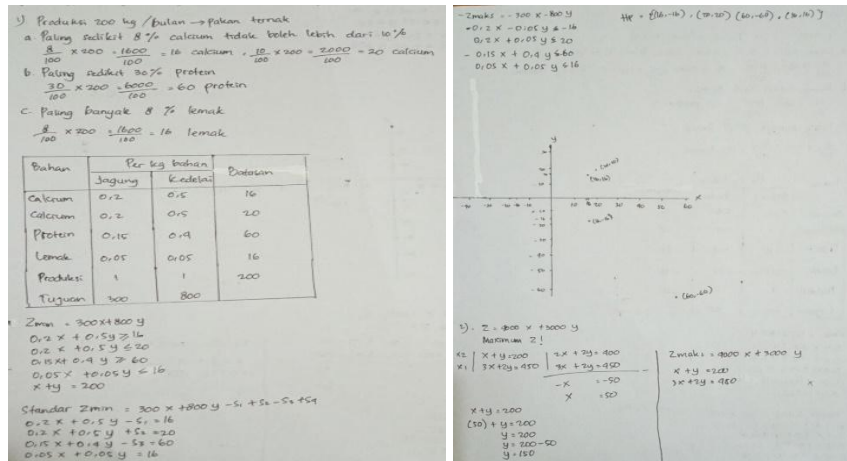 1) Produksi 200 kg /bulan → pakan ternak
a. Paling sedikit 8% calcium tidak boleh lebih dari 10%
8/100 x 200 = 1600/100 = 16 calcium = 10/100 x 200 = 2000/100 = 20 calcium
b. Paling sedikit 30% protein
30/100 x 200 = 6000/100 = 60 protein
c. Paling banyak 8 % lemak
8/100 x 200 = 1600/100 = 16 lemak
Bahan | Per kg bahan | Batasan
Jagung | Kedelai
Calcium 0,2 0,5 16
Calcium 0,2 0,5 20
Protein 0,15 0,4 60
Lemak 0,05 0,05 16
Produksi 1 1 200
Tujuan 300 800
Zmin = 300x+800 y
0,2 x + 0,5y ≥ 16
0,2 x + 0,5 y ≤ 20
0,15 x + 0,4 y ≥ 60
0,05 x + 0,05 y ≤ 16
x + y = 200
Standar Zmin = 300 x +800 y - S1 + S2 - S3 + S4
0,2 x + 0,5 y - S1 = 16
0,2 x + 0,5 y + S2 = 20
0,15 x + 0,4 y - S3 = 60
0,05 x + 0,05 y = 16
-Zmaks = -300 x -800 y
-0,2 x -0,05 y ≤ -16
0,2 x + 0,05 y ≤ 20
-0,15 x + 0,4 y ≤ 60
0,05 x + 0,05 y ≤ 16
HP = {(16,-16), (20,20) (60,-60), (16,16)}
y
x
(20,20)
(16,16)
(16,-16)
(60,-60)
2). Z = 4000 x +3000 y
Maximum Z!
x2 | x + y = 200 | 2x + 2y = 400
x1 | 3x+2y = 450 | 3x + 2y = 450
-x = -50
x = 50
x + y = 200
(50) + y = 200
y = 200
y = 200-50
y = 150
Zmaks = 4000 x + 3000 y
x + y = 200
3x + 2y = 450